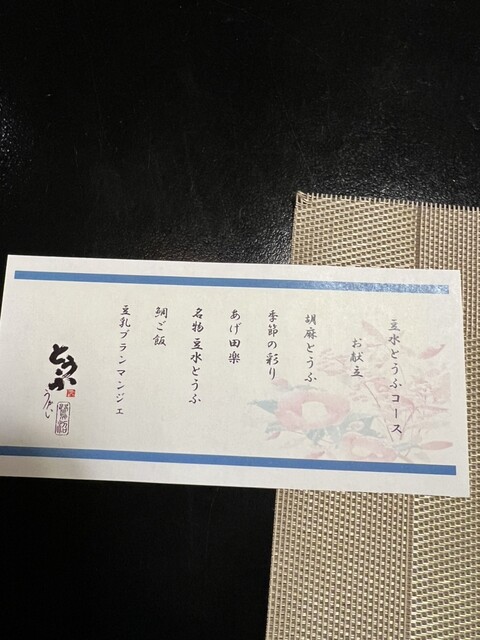 豆水とうふコース
お献立
胡麻とうふ
季節の彩り
あげ田楽
名物豆水とうふ
鯛ご飯
豆乳ブランマンジェ
とうふ
うかい